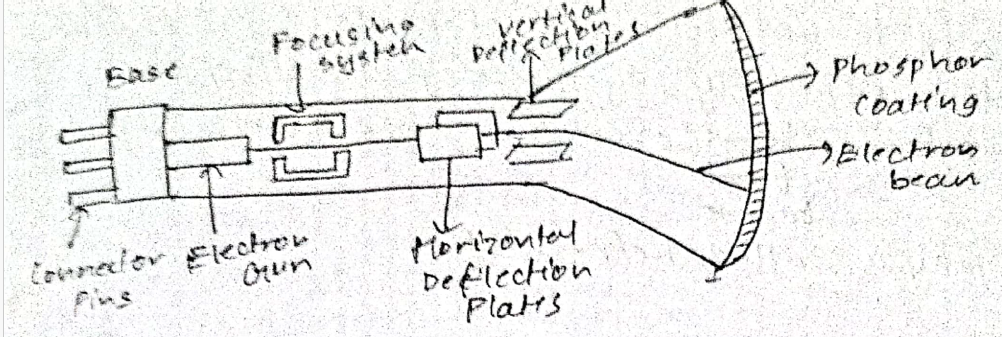 Base
Focusing
system
Vertical
Deflection
Plates
Phosphor
coating
Electron
beam
Connector
Pins
Electron
Gun
Horizontal
Deflection
Plates